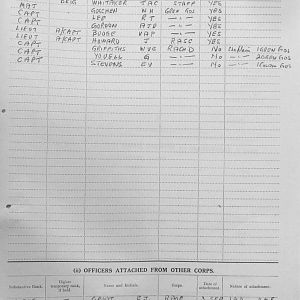 BRIG WHITAKER JAC STAFF YES
MAJ GOSCHEN W H GREN GDS YES
CAPT LEE R T —"— YES
CAPT GORDON A J D —"— YES
LIEUT A/CAPT BUDGE V A P —"— YES
LIEUT A/CAPT HOWARD J RASC YES
CAPT GRIFFITHS RAChD No Chaplain 1 GREN GDS
CAPT YOUDELL G —"— No —"— 2 GREN GDS
CAPT STEVENS E V —"— No —"—
(ii) OFFICERS ATTACHED FROM OTHER CORPS.
Substantive Rank. Higher temporary rank, if held. Name and Initials. Corps. Date of attachment. Nature of attachment.